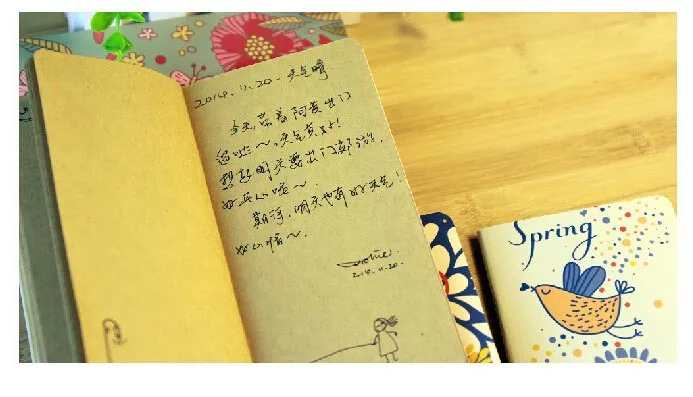 2014.11.20. 天气晴
今天带着阿黄出门
遛哒~,天气真好!
想起明天要出门郊游,
好开心哒~
期待,明天也有好天气!
好心情~
2014.11.20.
Spring